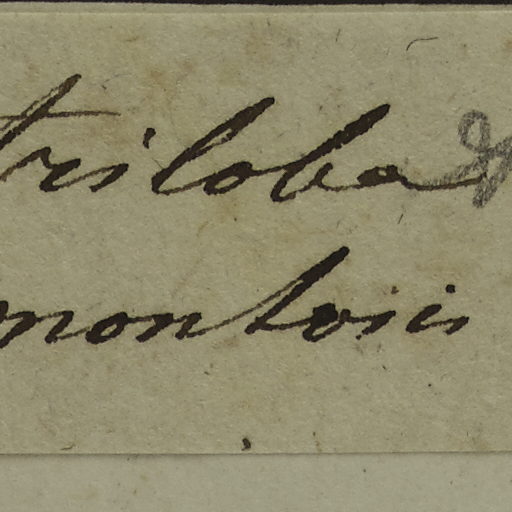 triloba
montosis